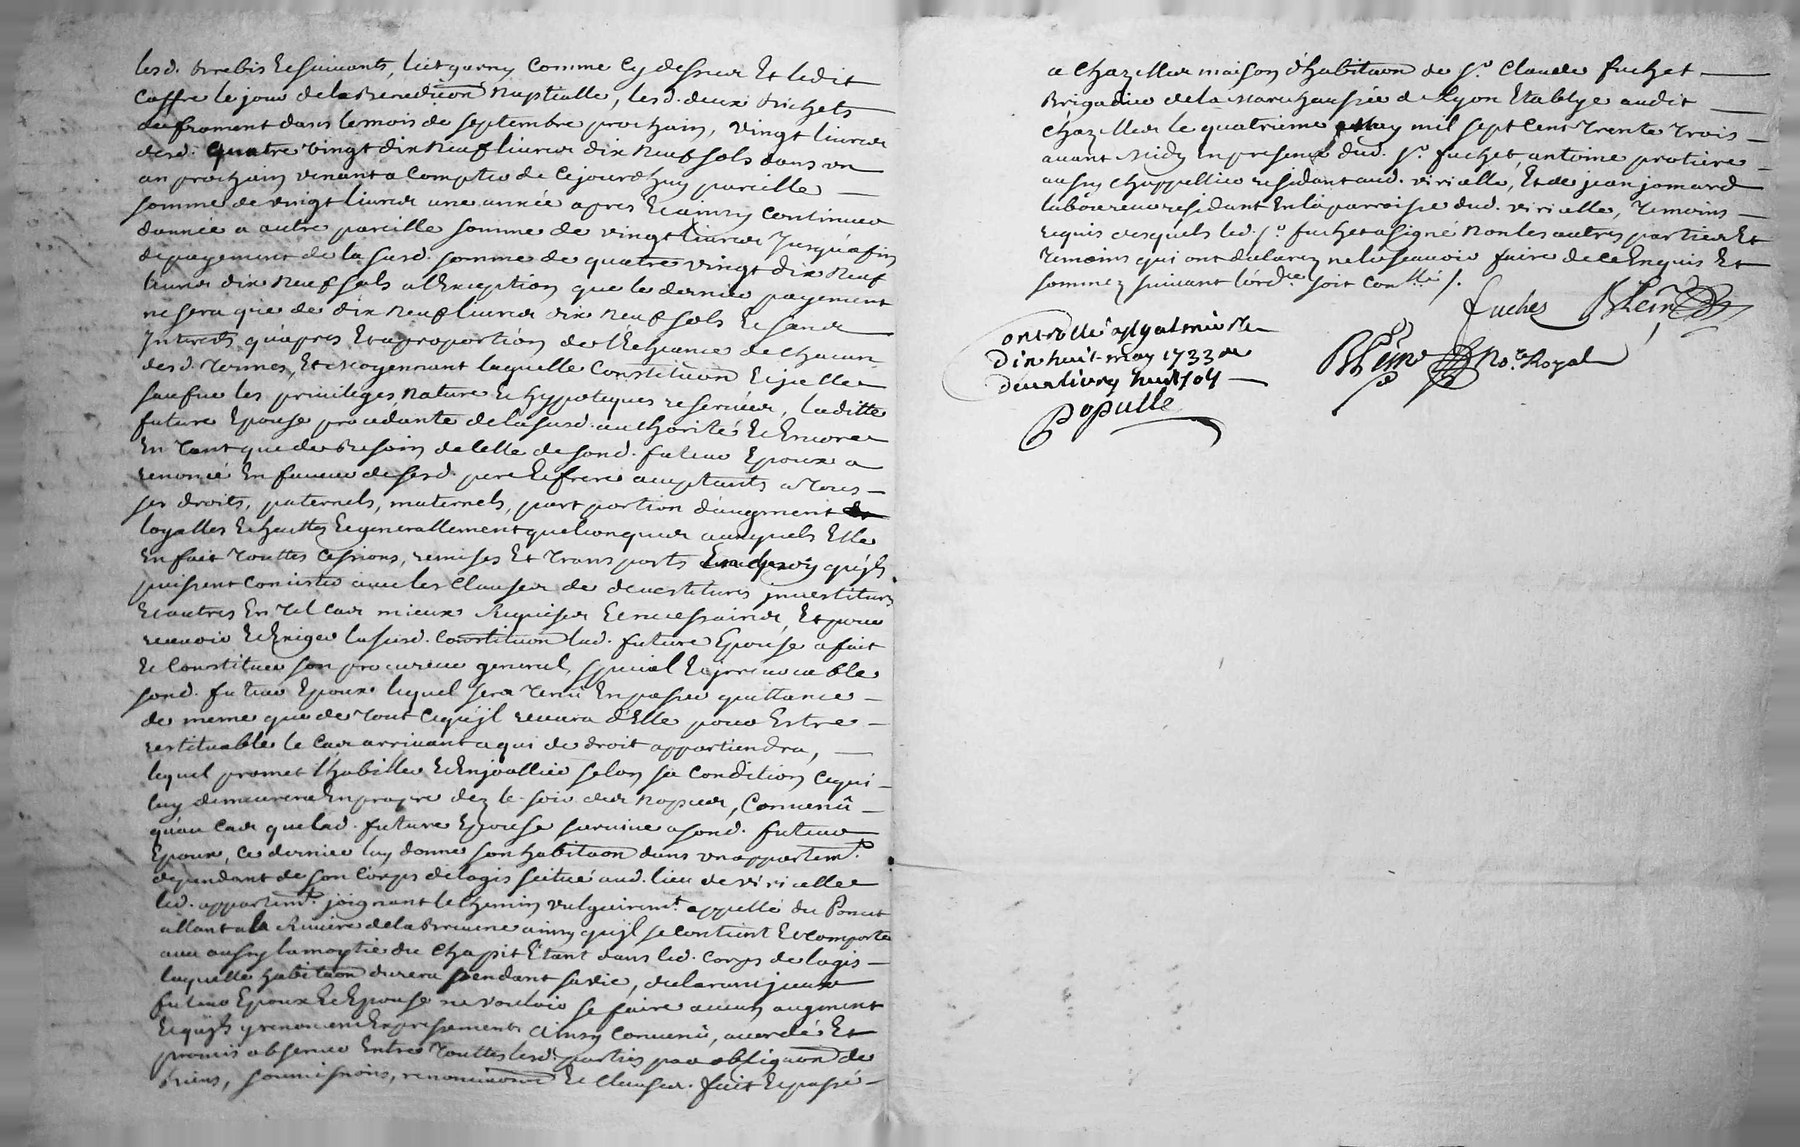 lesd. brebis Et suivants, lict garny comme Cy dessus Et ledit
Coffre le jour de la Benediction Nuptialle, lesd. deux bichets
de froment dans le mois de septembre prochain, vingt livres
desd. quatre vingt dix neuf livres dix neuf sols dans un
an prochain venant a Compter de Cejourdhuy pareille
somme de vingt livres une année apres Et ainsy Continuer
dannée a autre pareille somme de vingt livres Jusqu'a fin
de payement de la susd. somme de quatre vingt dix neuf
livres dix neuf sols a l'Exception que le dernier payement
ne sera que de dix neuf livres dix neuf sols Et sans
Interets qu'apres Et a proportion de l'Echeance de chacun
desd. termes, Et Moyennant laquelle Constituon Et icelle
sauf les privileges, Nature Et hypoteques reservées, laditte
future Epouse procedante de la susd. authorité Et Encore
En tant que de besoin de Celle de sond. futur Epoux a
renoncé En faveur de sesd. pere Et frere acceptants a tous
ses droits, paternels, maternels, part portion d'augment
loyalles Echuttes Et generallement quelconques auxquels Elle
En fait touttes Cessions, remises Et transports En quoy qu'ils
puissent Consister avec les Clauses de devestitures investitures
Et autres En tel Cas mieux Requises Et necessaires, Et pour
recevoir Et Exiger la susd. Constituon lad. future Epouse a fait
Et Constitué son procureur general, special Et irrevocable
sond. futur Epoux lequel sera tenu En passer quittance
de meme que de tout Ce qu'jl recevra d'Elle pour Estre
restituable le Cas arrivant a qui de droit appartiendra,
lequel promet l'habiller Et Enjoallier selon sa Condition Ce qui
luy demeurera En propre dez le soir des nopces, Convenû
qu'au Cas que lad. future Epouse survive a sond. futur
Epoux, Ce dernier luy donne son habituon dans un appartemt.
dependant de son Corps de logis scitué aud. lieu de viricelle
led. appartemt. joignant le Chemin vulgairemt. appellé du Ponat
allant a la Riviere de la Brevene ainsy qu'jl se Contient Et Comporte
avec aussy la moytié du Chapit Etant dans led. Corps de logis
laquelle habituon durera pendant sa vie, declarant jceux
futur Epoux Et Epouse ne vouloir se faire aucun augment
Et qu'jls y renoncent Expressement Ainsy Convenû, accordé Et
promis observer Entre touttes lesd. parties par obliguon de
biens, soumissions, renonciuons Et Clauses. fait Et passé
a Chazelles maison d'habituon de Sr. Claude fuchet
Brigadier de la Marechaussée de Lyon Etablye audit
Chazelles le quatrieme may mil sept Cent trente trois
avant Midy En presence dud. Sr. fuchet, antoine protiere
aussy Chappellier residant aud. viricelle, Et de jean jomard
laboureur residant En la parroisse dud. viricelle, temoins
requis desquels led. Sr. fuchet a signé Non les autres parties Et
temoins qui ont declarez ne le sçavoir faire de ce Enquis Et
sommez suivant l'ordce. soit conllé /.
fuchet
ontrollé a St galmier le
dix huit may 1733 Re
deux livres huit sols
Populle
Noe. Royal